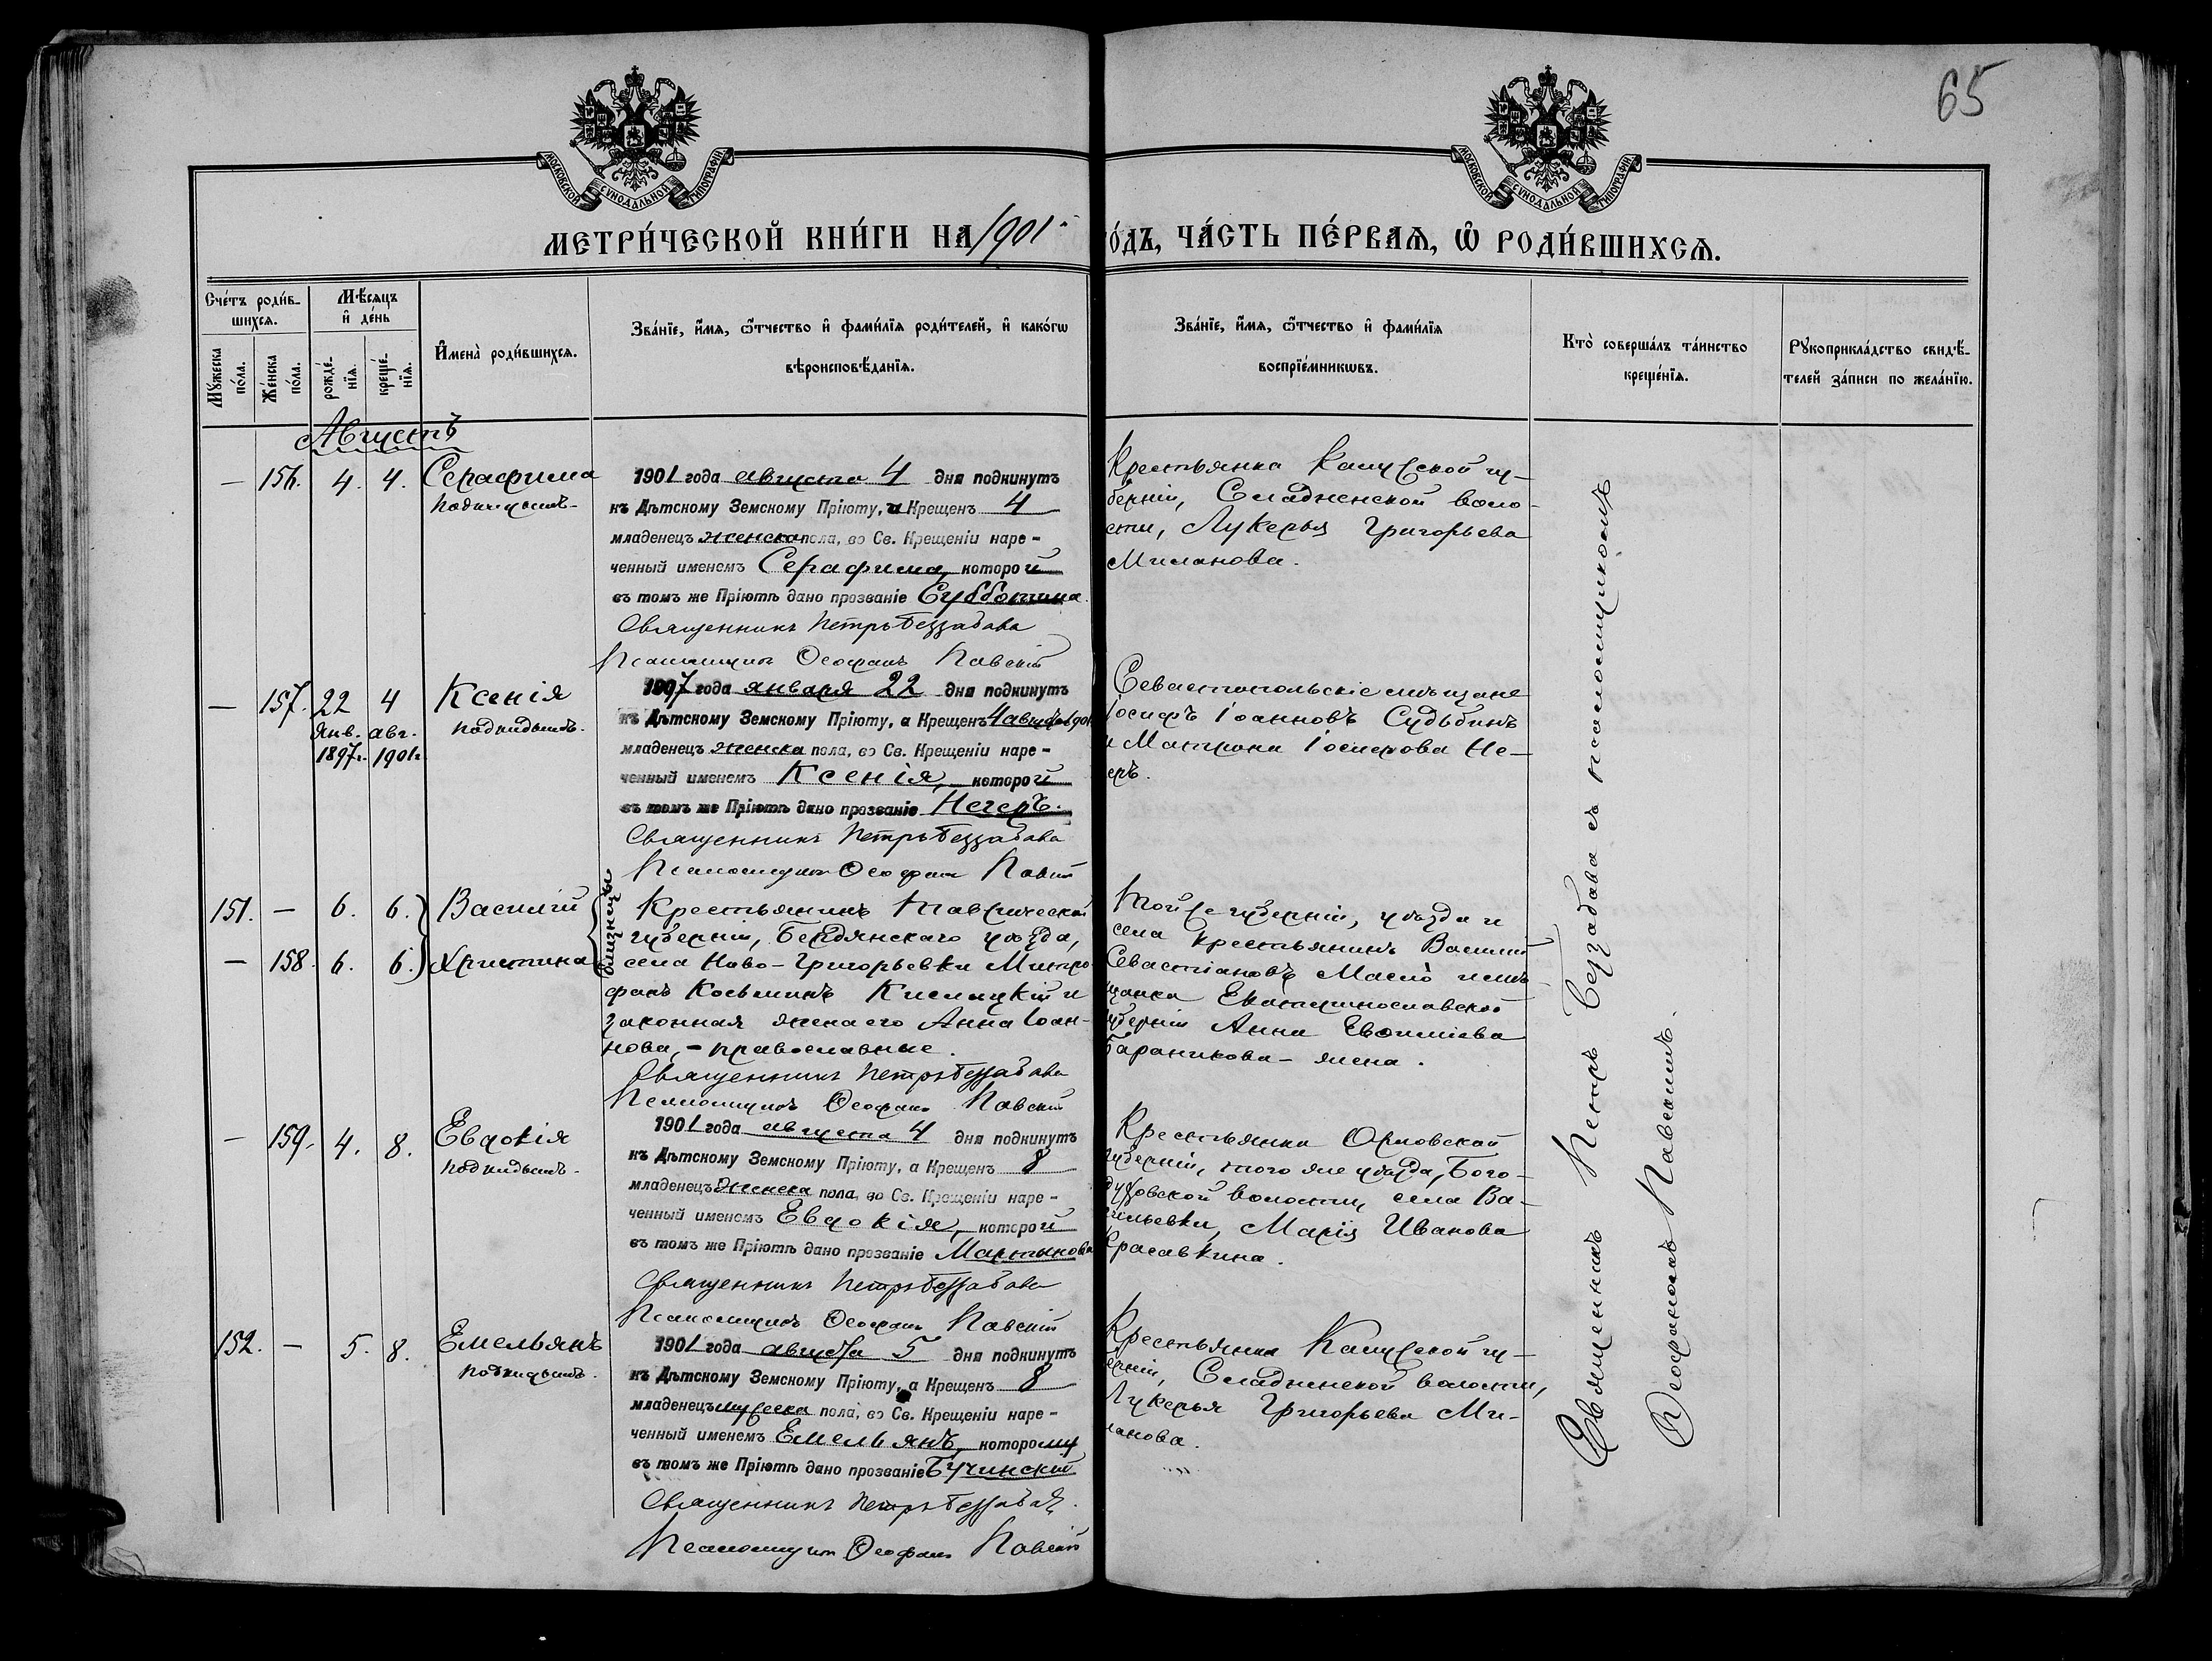 65
МОСКОВСКОЙ СѴНОДАЛЬНОЙ ТИПОГРАФІИ
МОСКОВСКОЙ СѴНОДАЛЬНОЙ ТИПОГРАФІИ
МЕТРИ́ЧЕСКОЙ КНИ́ГИ НА 1901
О́ДЪ, ЧА́СТЬ ПЕ́РВАѦ, Ѿ РОДИ́ВШИХСѦ.
Сче́тъ роди́в-
шихсѧ.
Мѣ́сѧцъ
и҆ де́нь
Мꙋ́жеска
по́ла.
Же́нска
по́ла.
рожде́-
нїѧ.
креще́-
нїѧ.
И҆мена̀ роди́вшихсѧ.
Зва́нїе, и҆́мѧ, ѻ҆́тчество и҆ фами́лїѧ роди́телей, и҆ како́гѡ
вѣроисповѣ́данїѧ.
Зва́нїе, и҆́мѧ, ѻ҆́тчество и҆ фами́лїѧ
воспрїе́мникѡвъ.
Кто̀ соверша́лъ та́инство
креще́нїѧ.
Рꙋкоприкла́дство свидѣ́-
телей за́писи по жела́нїю.
Августъ
— 156. 4. 4. Серафима
подкидышъ.
1901 года августа 4 дня подкинутъ
къ Дѣтскому Земскому Пріюту, и Крещенъ 4
младенецъ женска пола, во Св. Крещеніи наре-
ченный именемъ Серафима, которой
въ томъ же Пріютѣ дано прозваніе Субботина.
Священникъ Петръ Беззабава
Псаломщикъ Ѳеофанъ Павскій
Крестьянка Калужской гу-
берніи, Сладненской воло-
сти, Лукерья Григорьева
Миланова.
— 157. 22 4 Ксенія
янв. авг. подкидышъ.
1897г. 1901г.
1897 года января 22 дня подкинутъ
къ Дѣтскому Земскому Пріюту, а Крещенъ 4 августа 1901
младенецъ женска пола, во Св. Крещеніи наре-
ченный именемъ Ксенія, которой
въ томъ же Пріютѣ дано прозваніе Нечеръ.
Священникъ Петръ Беззабава
Псаломщикъ Ѳеофанъ Павскій
Севастопольскіе мѣщане
Іосифъ Іоанновъ Судьбинъ
и Матрона Іосифова Не-
еръ.
151. — 6. 6. Василій
— 158. 6. 6. Христина
близнецы
Крестьянинъ Таврической
губерніи, Бердянскаго уѣзда,
села Ново-Григорьевки Митро-
фанъ Косьминъ Кислицкій и
законная жена его Анна Іоан-
нова, - православные.
Священникъ Петръ Беззабава
Псаломщикъ Ѳеофанъ Павскій
Той же губерніи, уѣзда и
села крестьянинъ Василій
Севастіановъ Масло и мѣ-
щанка Екатеринославской
губерніи Анна Евѳиміева
Бараникова - жена.
— 159. 4. 8. Евдокія
подкидышъ.
1901 года августа 4 дня подкинутъ
къ Дѣтскому Земскому Пріюту, а Крещенъ 8
младенецъ женска пола, во Св. Крещеніи наре-
ченный именемъ Евдокія, которой
въ томъ же Пріютѣ дано прозваніе Мартынова
Священникъ Петръ Беззабава
Псаломщикъ Ѳеофанъ Павскій
Крестьянка Орловской
губерніи, того же уѣзда, Бого-
духовской волости, села Ва-
сильевки, Марія Иванова
Красавкина.
152. — 5. 8. Емельянъ
подкидышъ.
1901 года августа 5 дня подкинутъ
къ Дѣтскому Земскому Пріюту, а Крещенъ 8
младенецъ мужеска пола, во Св. Крещеніи наре-
ченный именемъ Емельянъ, которому
въ томъ же Пріютѣ дано прозваніе Бучинскій
Священникъ Петръ Беззабава.
Псаломщикъ Ѳеофанъ Павскій
Крестьянка Калужской гу-
берніи, Сладненской волости,
Лукерья Григорьева Ми-
ланова.
Священникъ Петръ Беззабава съ псаломщикомъ
Ѳеофаномъ Павскимъ.